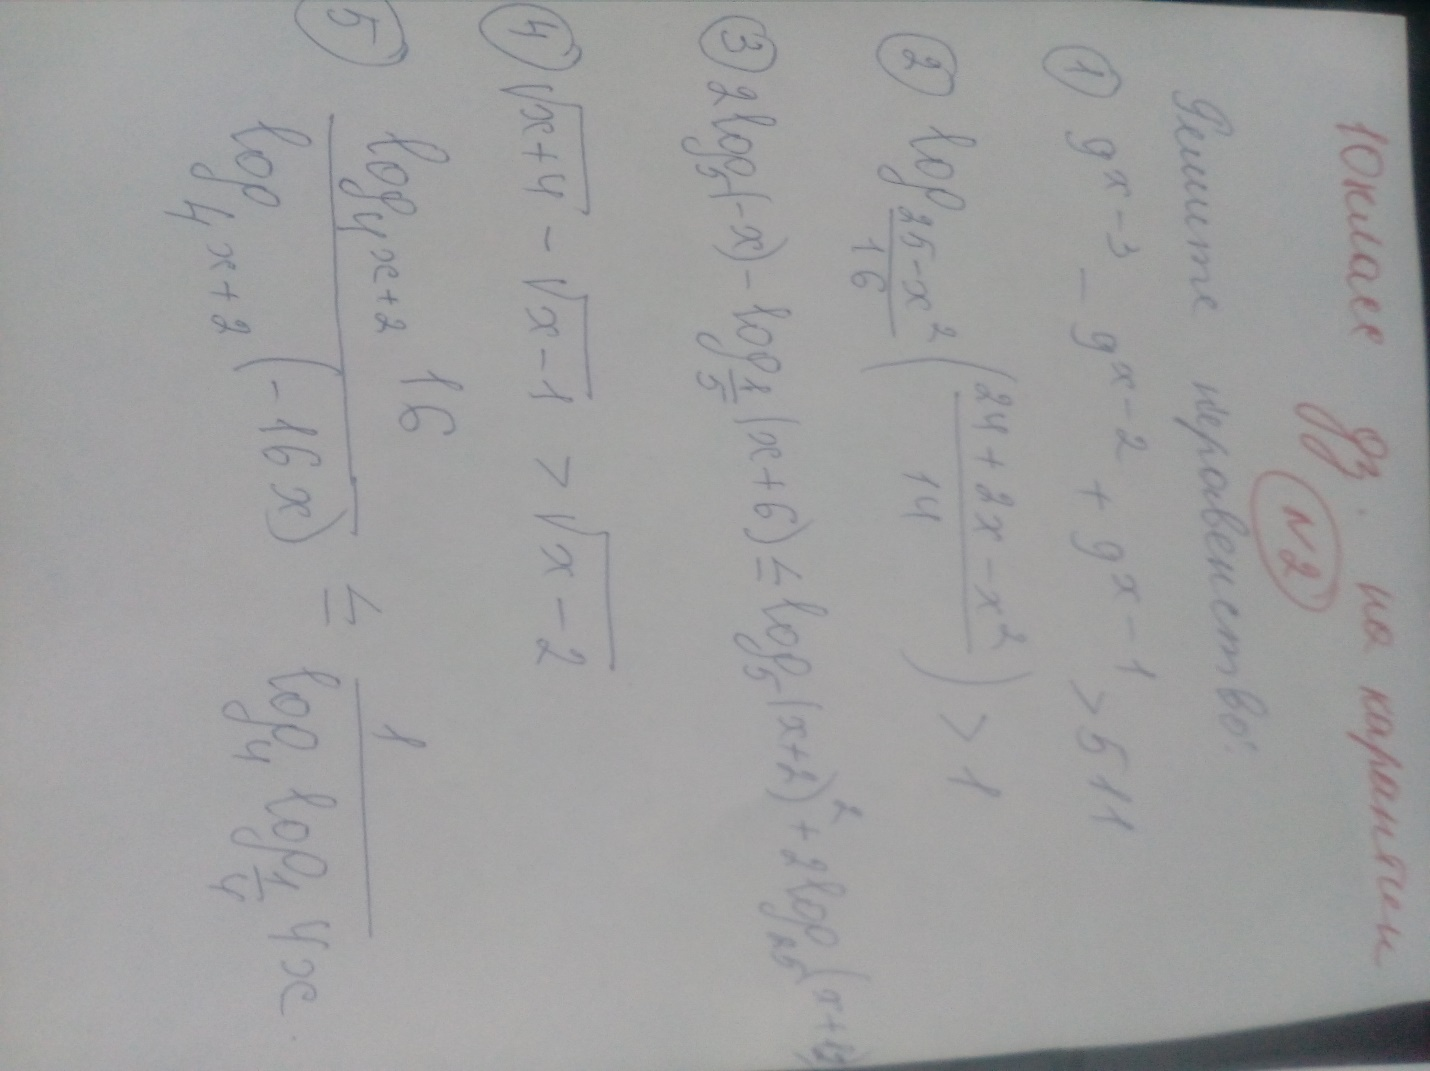 10 класс дз. на карантин
N2
Решите неравенство:
① 9^{x-3} - 9^{x-2} + 9^{x-1} > 511
② log_{\frac{25-x^2}{16}} (\frac{24+2x-x^2}{14}) > 1
③ 2log_5(-x) - log_{\frac{1}{5}}(x+6) ≤ log_5(x+2)^2 + 2log_{25}
④ √(x+4) - √(x-1) > √(x-2)
⑤ \frac{log_{4^{x+2}} 16}{log_{4^{x+2}} (-16x)} ≤ \frac{1}{log_4 log_{\frac{1}{4}} 4^x}